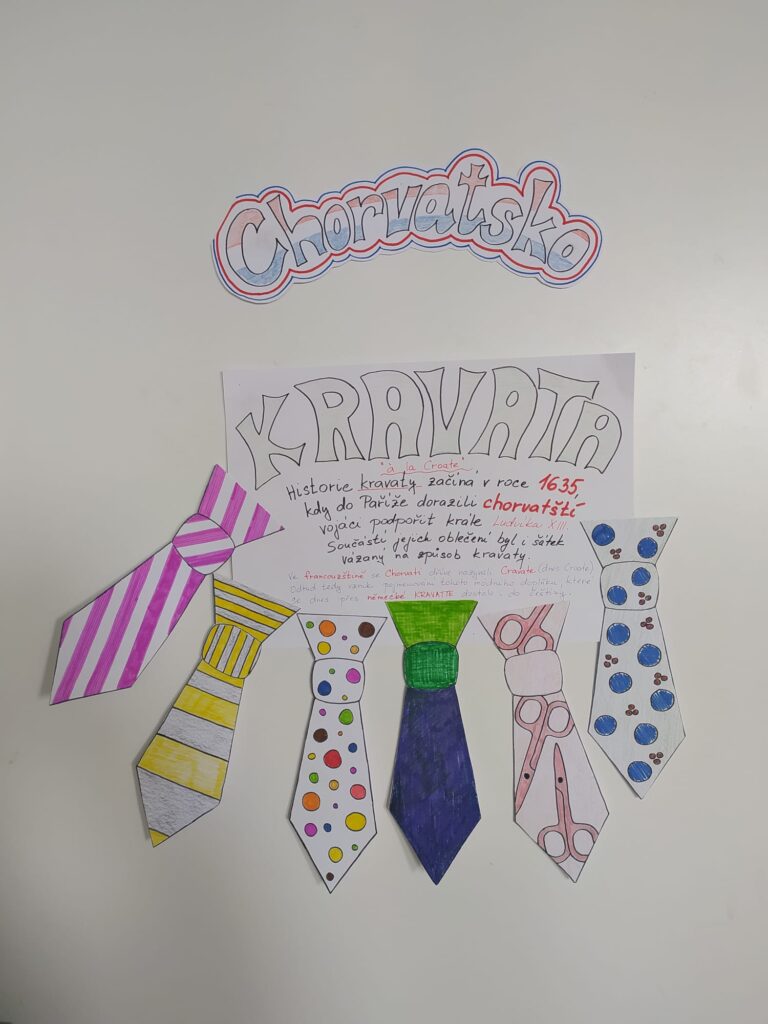 Chorvatsko
KRAVATA
"à la Croate"
Historie kravaty začíná v roce 1635,
kdy do Paříže dorazili chorvatští
vojáci podpořit krále Ludvíka XIII.
Součástí jejich oblečení byl i šátek
vázaný na způsob kravaty.
Ve francouzštině se Chorvati dříve nazývali Cravate (dnes Croate)
Odtud tedy vznik pojmenování tohoto módního doplňku, které
se dnes přes německé KRAVATTE dostalo i do češtiny.